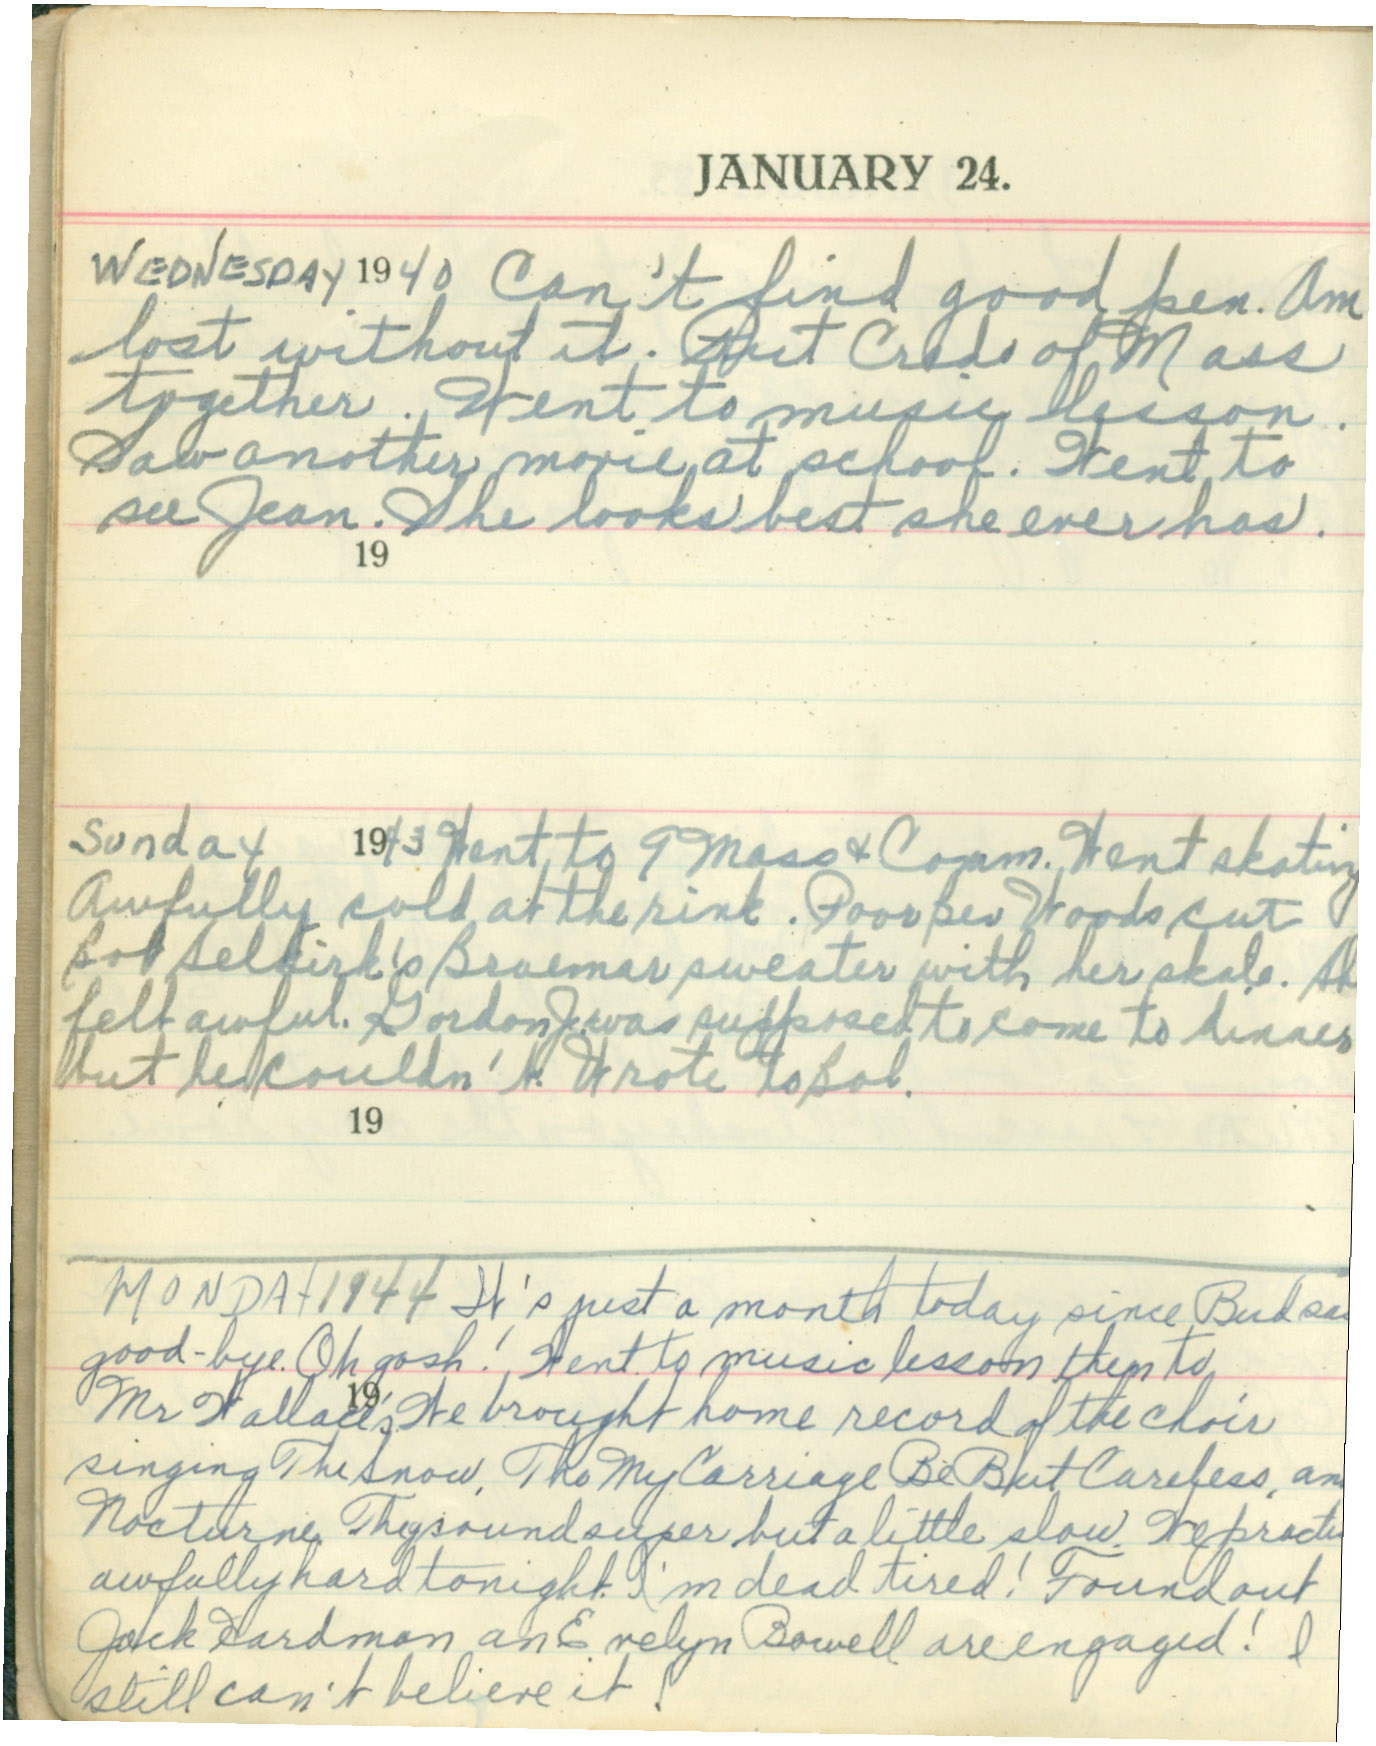 JANUARY 24.
WEDNESDAY 1940 Can't find good pen. Am
lost without it. Put Credo of Mass
together. Went to music lesson.
Saw another movie at school. Went to
see Jean. She looks best she ever has.
19
Sunday 1943 Went to 9 Mass & Comm. Went skating
Awfully cold at the rink. Poor Bev Woods cut
Bob Selkirk's Braemar sweater with her skate. Sh
felt awful. Gordon J. was supposed to come to dinner
but he couldn't. Wrote to Bob.
19
MONDAY 1944 It's just a month today since Bud sai
good-bye. Oh gosh! Went to music lesson then to
19
Mr Wallace's. We brought home record of the choir
singing The Snow, Tho My Carriage Be But Careless, an
Nocturne. They sound super but a little slow. We practi
awfully hard tonight. I'm dead tired! Found out
Jack an Evelyn Bowell are engaged! I
still can't believe it!